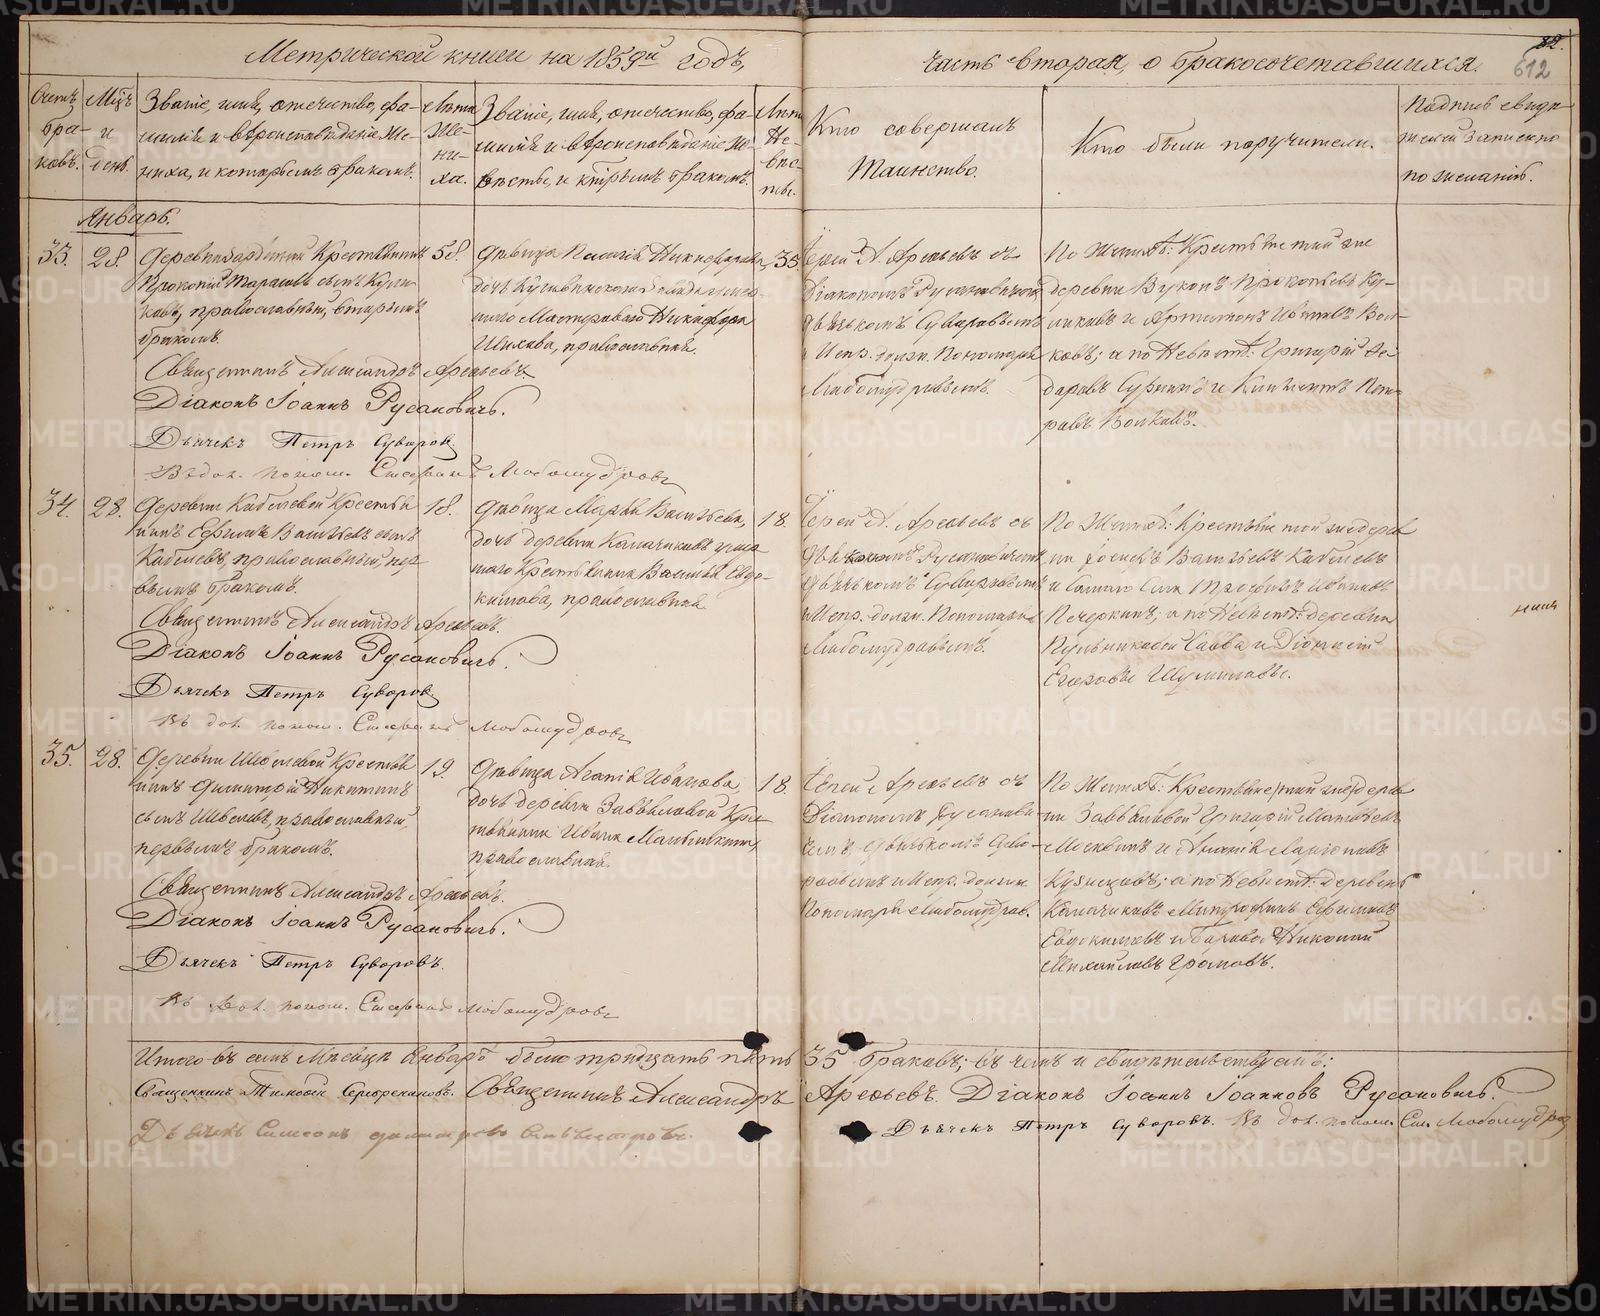 Метрической книги на 1859й годъ,
часть вторая, о бракосочетавшихся.
82.
612
Счетъ браковъ.
Мѣсяцъ и день.
Званіе, имя, отечество, фамилія и вѣроисповѣданіе Жениха, и которымъ бракомъ.
Лѣта Жениха.
Званіе, имя, отечество, фамилія и вѣроисповѣданіе Невѣсты, и которымъ бракомъ.
Лѣта Невѣсты.
Кто совершалъ Таинство.
Кто были поручители.
Подпись свидетелей записи по желанію.
Январь.
33.
28.
Крестьянинъ
Прокопій Тарасовъ сынъ Кули-
ковъ, православный, вторымъ
бракомъ.
58.
Дѣвица Пелагія Никифорова,
дочь
Мастероваго Никифора
Шихова, православная.
35.
Іерей А. Арефьевъ съ
Діакономъ Русановичемъ
дьячкомъ Суворовымъ
и Испр. должн. Пономаря
Любомудровымъ.
По Женихѣ: Крестьяне той же
деревни Вуколъ Прокопьевъ Ку-
ликовъ и Артамонъ Вол-
ковъ; а по Невѣстѣ: Григорій Ѳе-
доровъ и Климентъ Пет-
ровъ Волковъ.
Священникъ Александръ Арефьевъ
Діаконъ Іоаннъ Русановичъ.
Дьячекъ Петръ Суворов
Въ дол. поном. Любомудровъ
34.
28.
Деревни Кабилевой Крестья
нинъ Ефимъ Васильевъ сынъ
Кабилевъ, православный, пер
вымъ бракомъ.
18.
Дѣвица Марья Васильева,
дочь деревни Калачиковъ умер
шаго Крестьянина Василья Евдо-
кимова, православная
18.
Іерей А. Арефьевъ съ
Діакономъ Русановичемъ
дьячкомъ Суворовымъ
и Испр. должн. Пономаря
Любомудровымъ.
По Женихѣ: Крестьяне той же дерев
ни Васильевъ Кабилевъ
и Трофимъ
Печеркинъ, а по Невѣстѣ: деревни
Пульниковой Савва и Діонисій
Егоровы Шумиловы.
Священникъ Александръ Арефьевъ.
Діаконъ Іоаннъ Русановичъ.
Дьячекъ Петръ Суворов
Въ дол. поном. Любомудровъ
35.
28.
Деревни Шевелевой Крестья
нинъ Димитрій Никитинъ
сынъ Шевелевъ, православный,
первымъ бракомъ.
19.
Дѣвица Агапія Иванова,
дочь деревни Завьяловой Кре-
стьянина Ивана
православная.
18.
Іерей Арефьевъ съ
Діакономъ Русанови-
чемъ, дьячкомъ Суво-
ровымъ и Испр. должн.
Пономаря Любомудров.
По Женихѣ: Крестьяне той же дерев
ни Завьяловой Григорій Матвѣевъ
Москвинъ и Ананія Ларіоновъ
Кузнецовъ; а по Невѣстѣ: деревень
Калачиковъ Митрофанъ Ефимовъ
Евдокимовъ и Николай
Михайловъ Громовъ.
Священникъ Александръ Арефьевъ.
Діаконъ Іоаннъ Русановичъ.
Дьячекъ Петръ Суворовъ.
Въ дол. поном. Любомудровъ
Итого въ семъ Мѣсяцѣ Январѣ было тридцать пять 35 браковъ; въ чемъ и свидѣтельствуемъ:
Священникъ Тимофей Серебрениковъ. Священникъ Александръ Арефьевъ. Діаконъ Іоаннъ Іоанновъ Русановичъ.
Дьячекъ Симеонъ
Дьячекъ Петръ Суворовъ. Въ дол. поном. Любомудров
METRIKI.GASO-URAL.RU